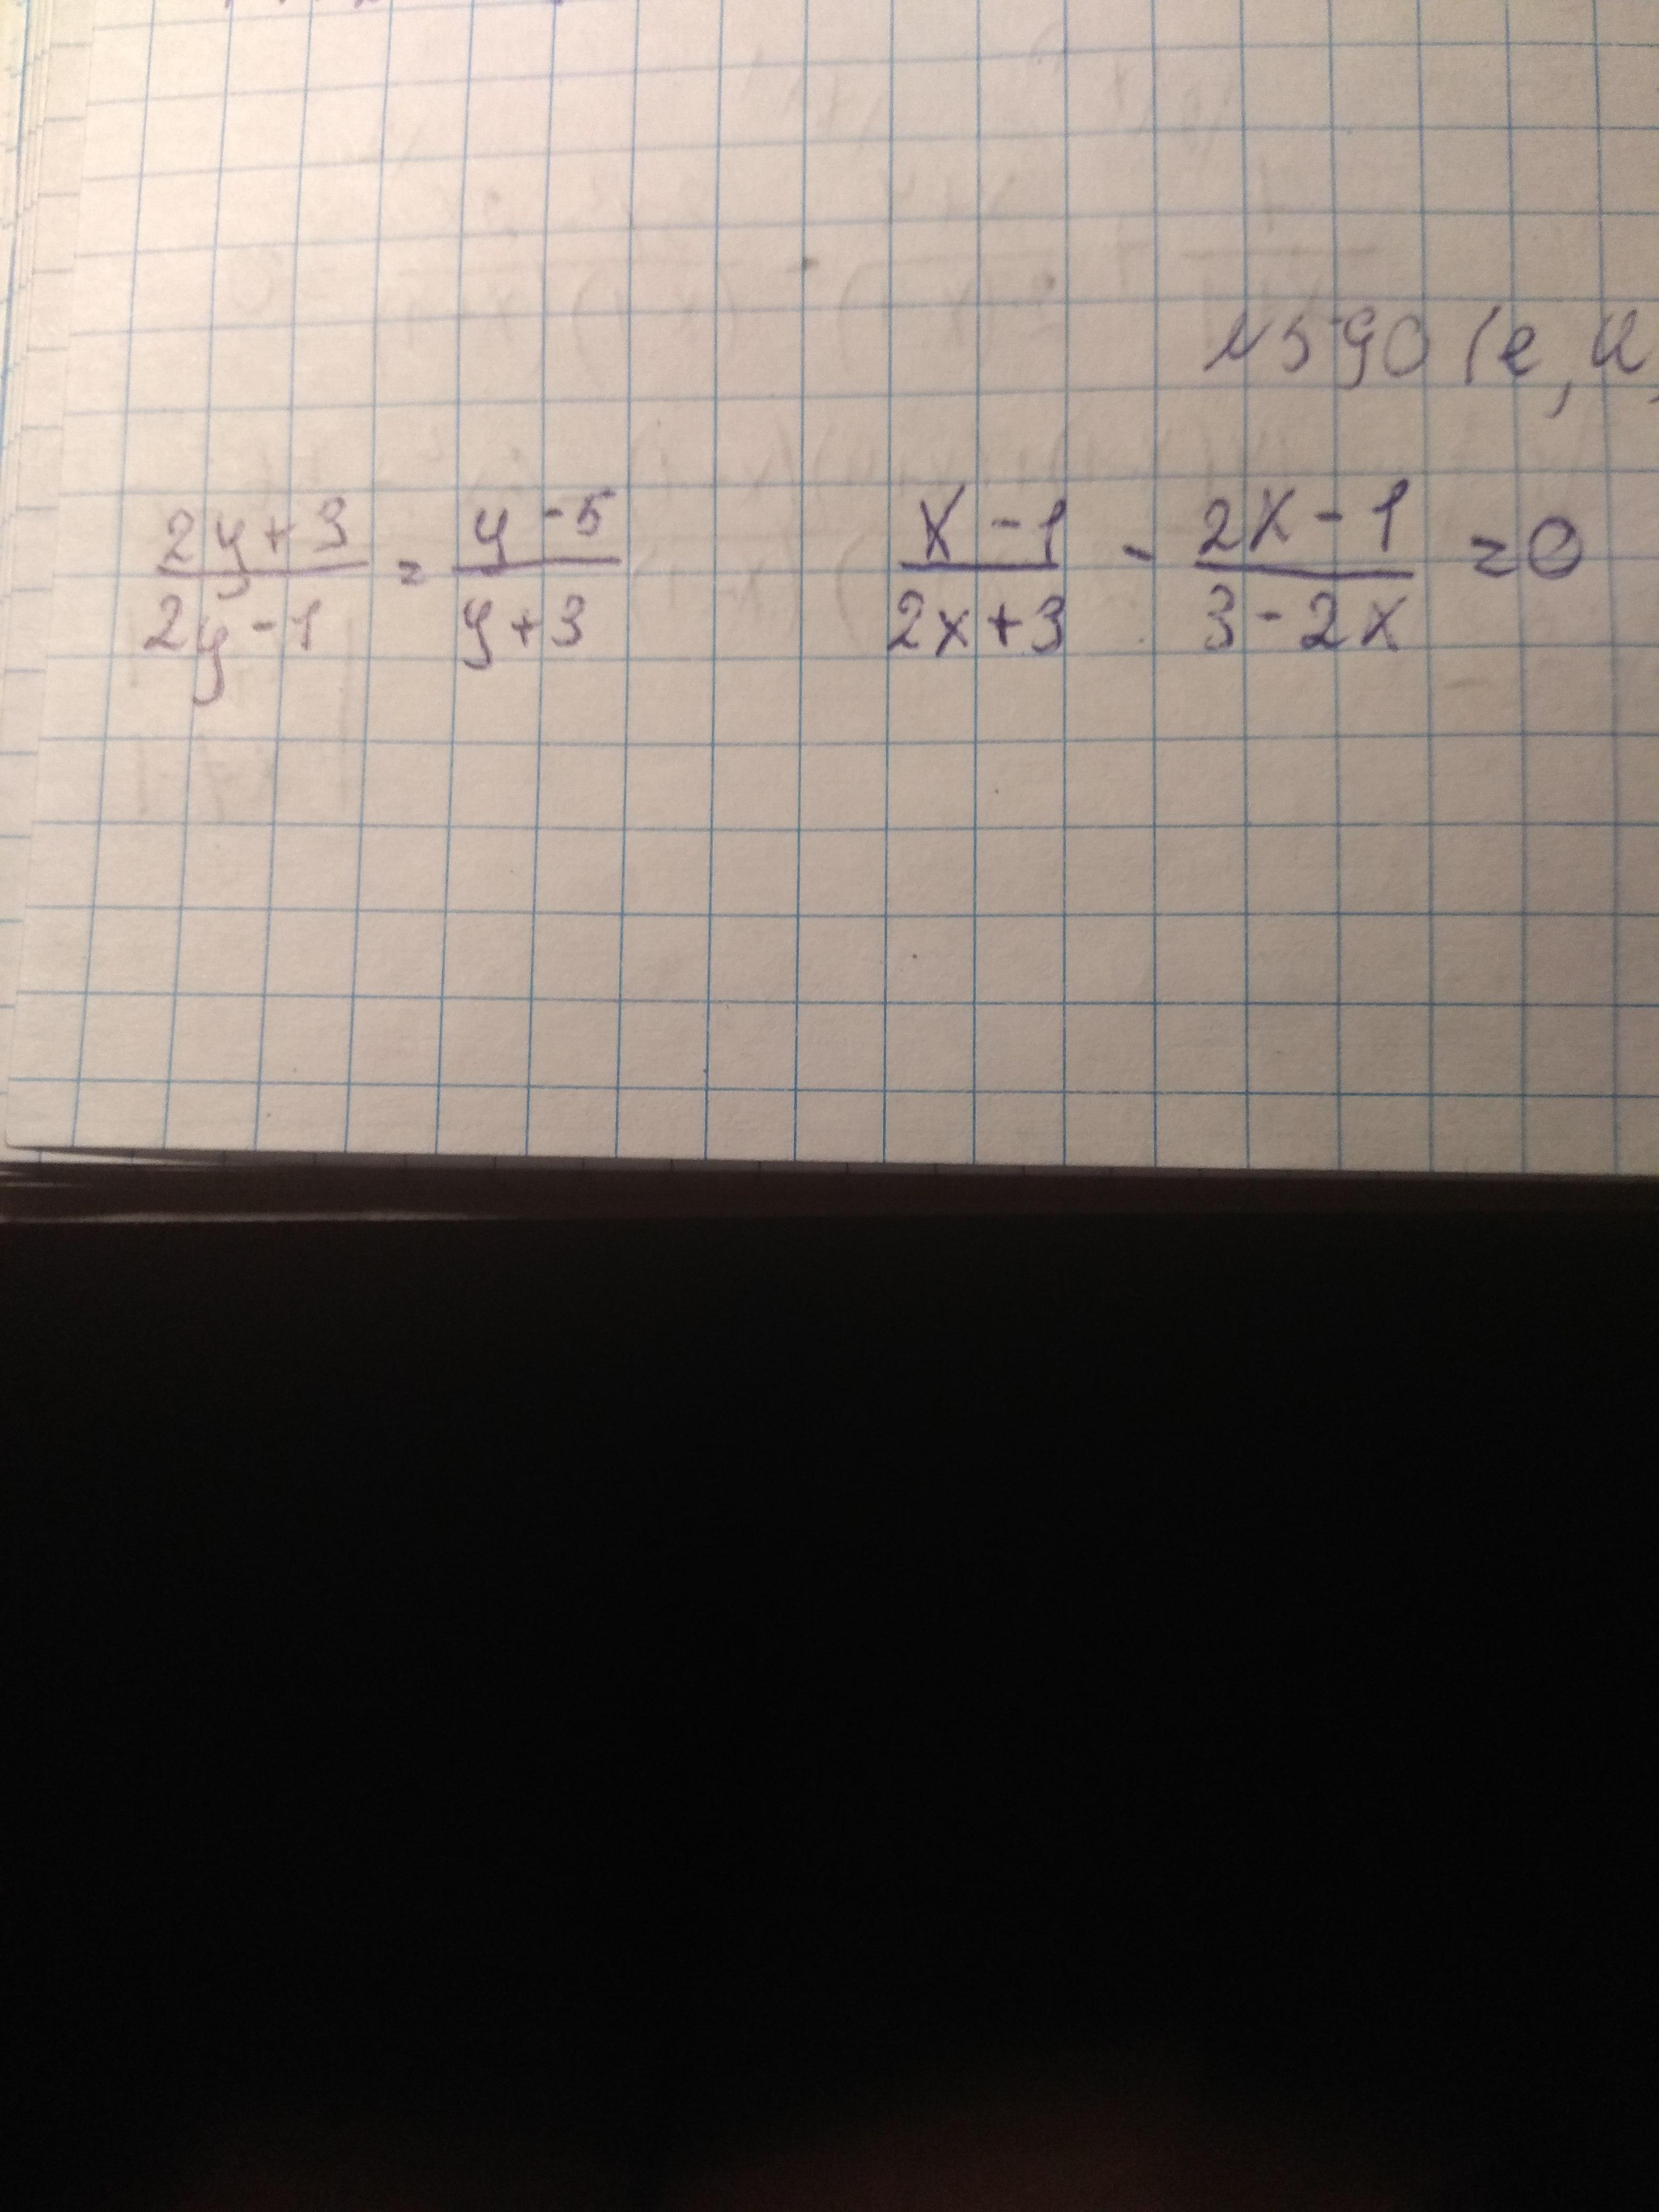 №590 (е,
(2y+3)/(2y-1) = (y-5)/(y+3) (x-1)/(2x+3) - (2x-1)/(3-2x) = 0